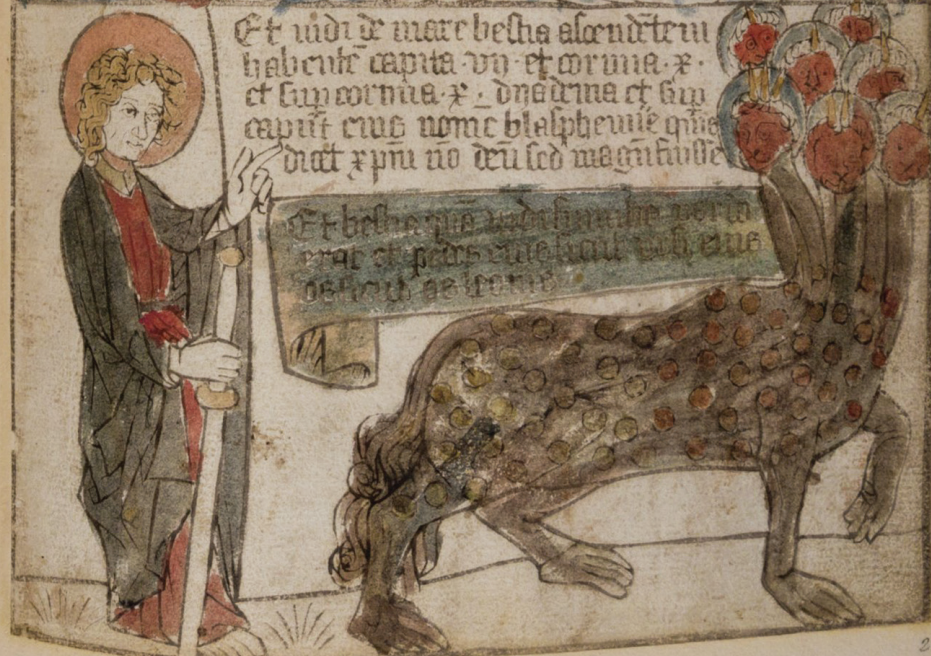 Et uidi de mare bestia ascendētem
habentē capita vij · et cornua · x ·
et sup cornua · x · dyadema et sup
caput eius nomē blasphemie quia
dicēt xpm nō deū sed magū fuisse
Et bestia quā uidi similis
erat et pedes eius sicut eius
os leonis
2